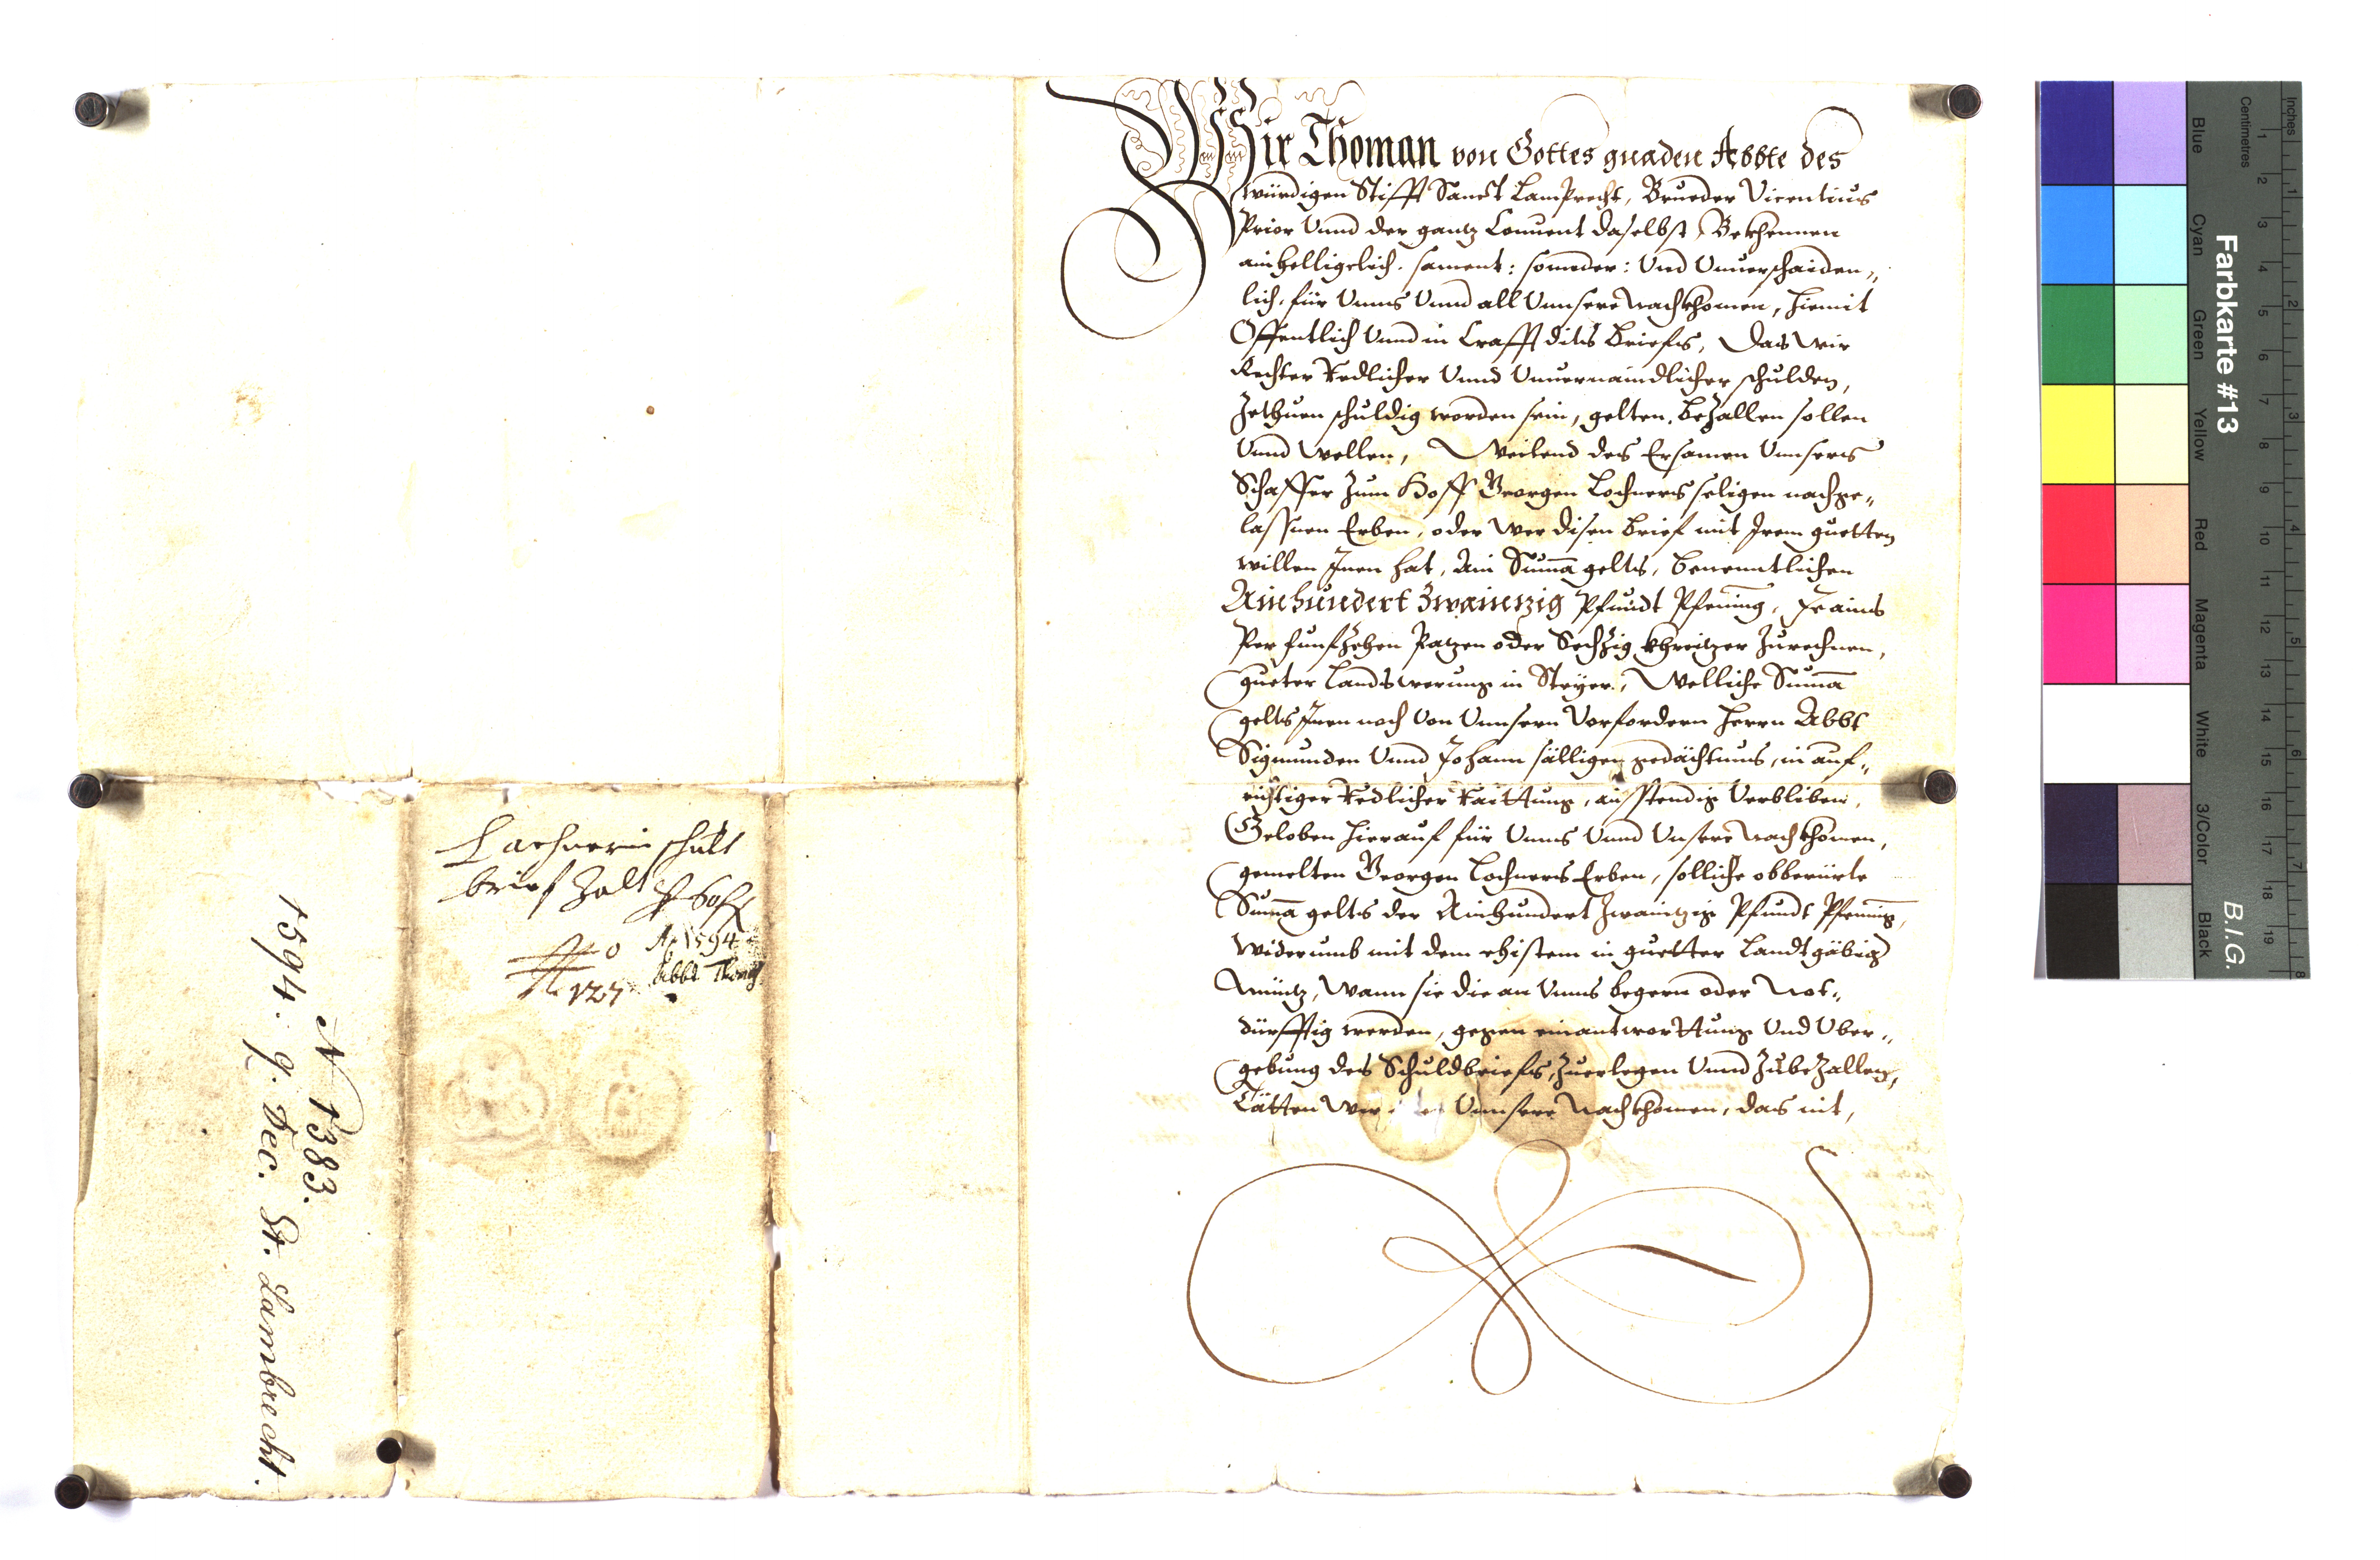 Wir Thoman von Gottes gnaden Abbte des
würdigen Stifft Sanct Lamprecht, Brueder Vicentius
Prior Vnnd der gantz Conuent daselbst, Bekhennen
ainhelligelich. sament: sonnder: Vnd Vnuerschaiden„
lich, für Vnns Vnnd all Vnnsere Nachkhomen, hiemit
Offentlich Vnnd in Crafft dits Briefs, Das wir
Rechter Redlicher Vnnd Vnuernaindlicher schulden,
Zethuen schuldig worden sein, gelten, bezallen sollen
Vnnd wellen, Weilend des Ersamen Vnnsers
Schaffer zum Hoff Georgen Lochners seligen nachge„
lassnen Erben, oder wer disen brief mit Irem guetten
willen Innen hat, Ain Suma gelts, benenntlichen
Ainhundert Zwaintzig Pfundt Pfening, Jr ains
Per funfzehen Patzen oder Sechzig khreitzer Zurechnen,
gueter Landswerung in Steyer, Welliche Suma
gelts Inen noch Von Vnnsern Vorfordern Herrn Abbt
Sigmunden Vnnd Johann sälligen gedächtnus, in auf„
richtiger Redlicher Raittung, ausstendig Verbliben,
Geloben hierauf für Vnns Vnnd Vnsere Nachkhomen,
gemelten Georgen Lochners Erben, solliche obberürte
Suma gelts der Ainhundert Zwaintzig Pfundt Pfenning,
widerumb mit dem ehistem in guetter Landtgäbig
Müntz, Wann sie die an Vnns begern oder Not„
dürfftig werden, gegen einantworttung Vnd Vber„
gebung des Schuldbriefs, Zuerlegen Vnnd Zubezallen,
Tätten Wir Vnnsere Nachkhomen, das nit,
Lachnerin schult
brief Zalt
Ao 1594
Abbt Thoman
No
127
N 1383.
1594. 9. Dec. St. Lambrecht.
Farbkarte #13
B.I.G.
Blue
Cyan
Green
Yellow
Red
Magenta
White
3/Color
Black
Centimetres
Inches
1 2 3 4 5 6 7 8 9 10 11 12 13 14 15 16 17 18 19
1 2 3 4 5 6 7 8